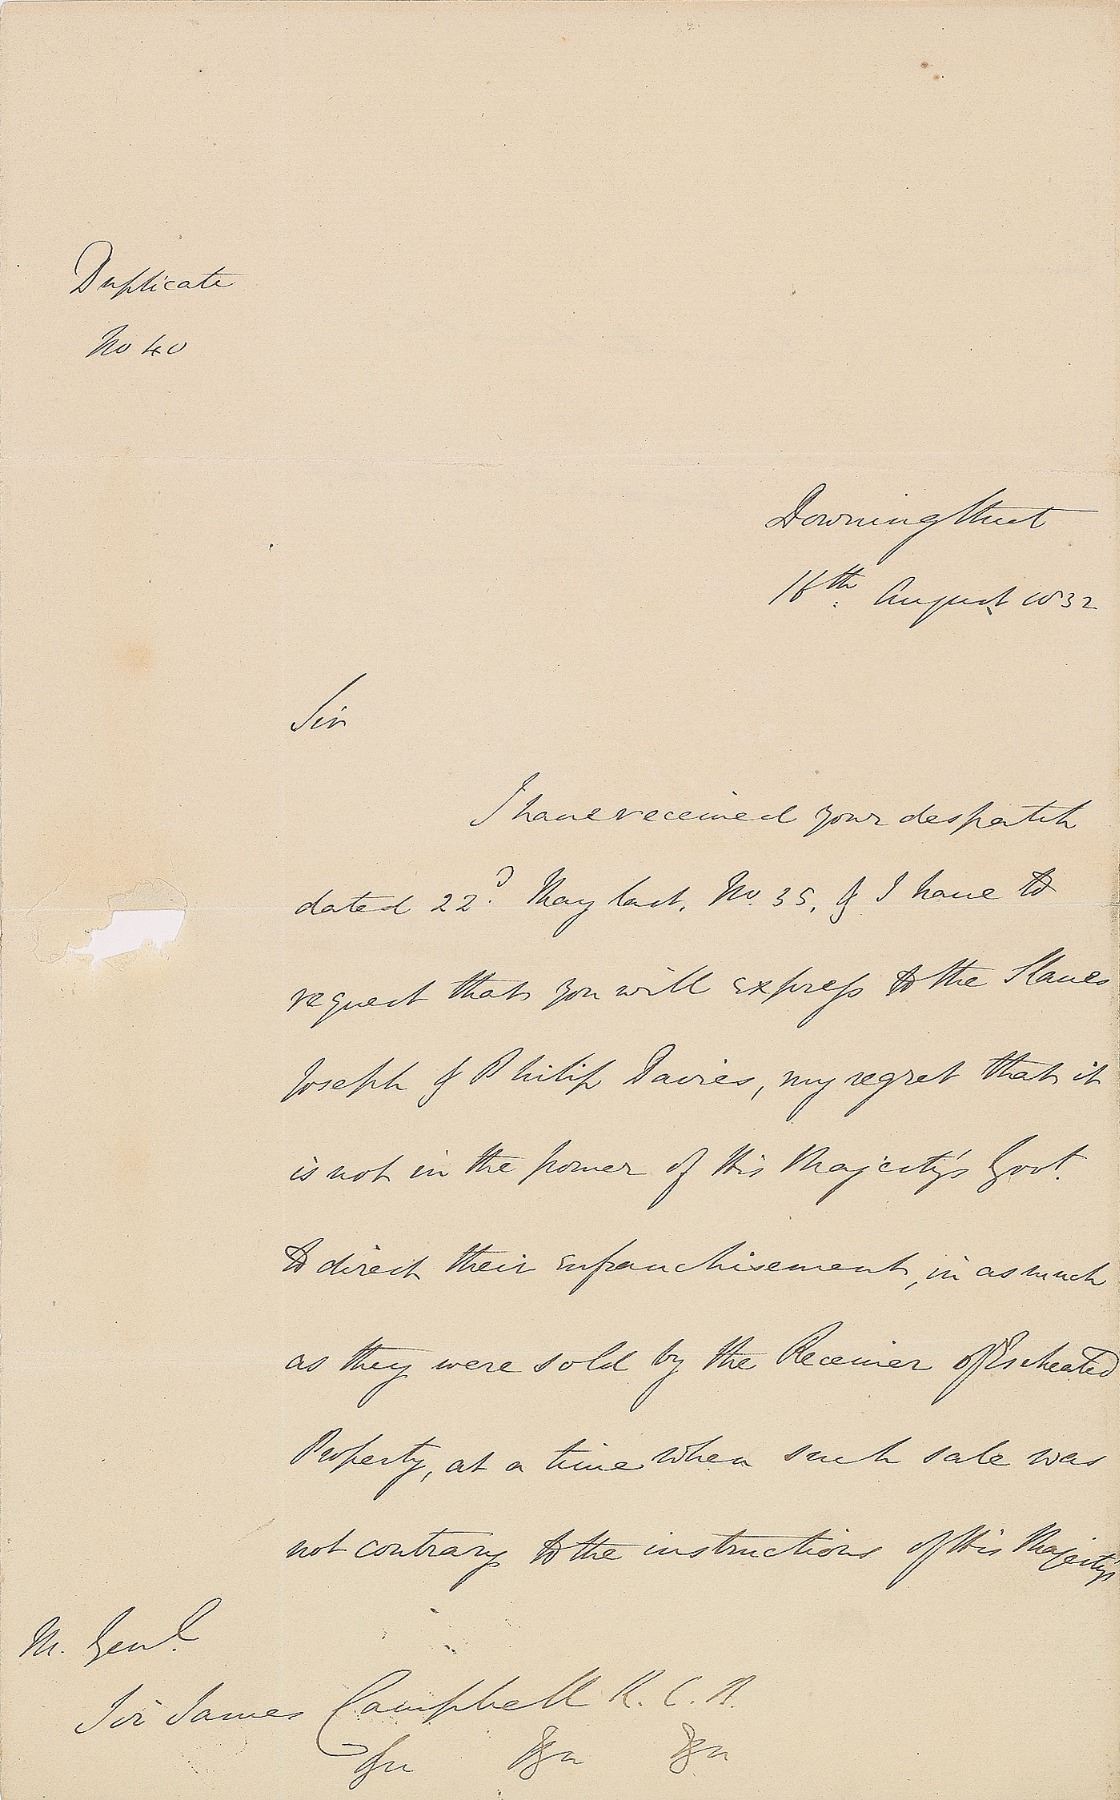 Duplicate
No 40
Downing Street
18th. August 1832
Sir
I have received your despatch
dated 22d. May last, No. 35, & I have to
request that you will express to the Slaves
Joseph & Philip Davies, my regret that it
is not in the power of His Majesty's Govt.
to direct their enfranchisement, in as much
as they were sold by the Receiver of Escheated
Property, at a time when such sale was
not contrary to the instructions of His Majesty's
M. Genl.
Sir James Campbell K. C. B.
&c &c &c